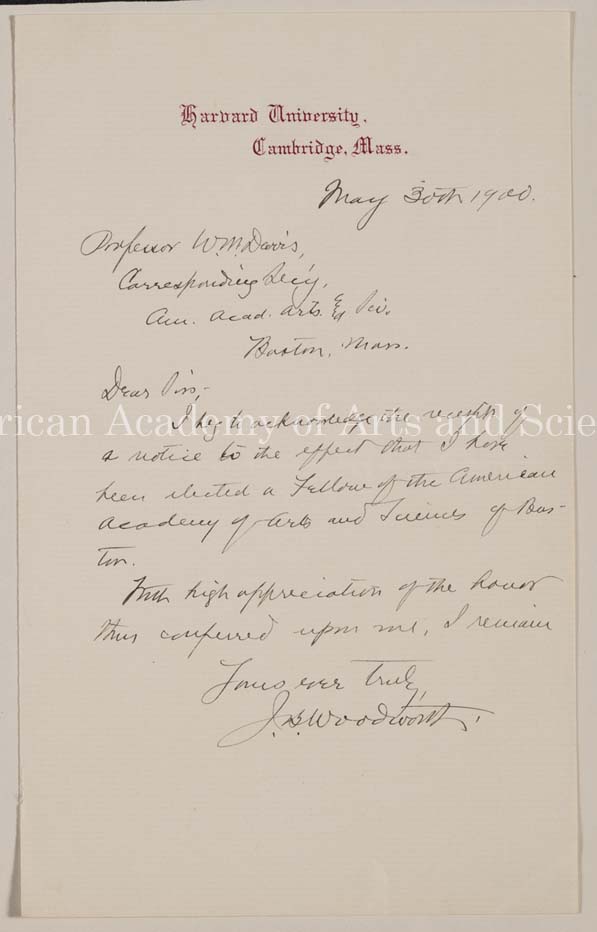 Harvard University.
Cambridge, Mass.
May 30th 1900.
Professor W. M. Davis,
Corresponding Sec'y,
Am. Acad. Arts & Sci.
Boston, Mass.
Dear Sir,-
I beg to acknowledge the receipt of
a notice to the effect that I have
been elected a Fellow of the American
Academy of Arts and Sciences of Bos-
ton.
With high appreciation of the honor
thus conferred upon me, I remain
Yours ever truly,
J. B. Woodworth.
rican Academy of Arts and Scie